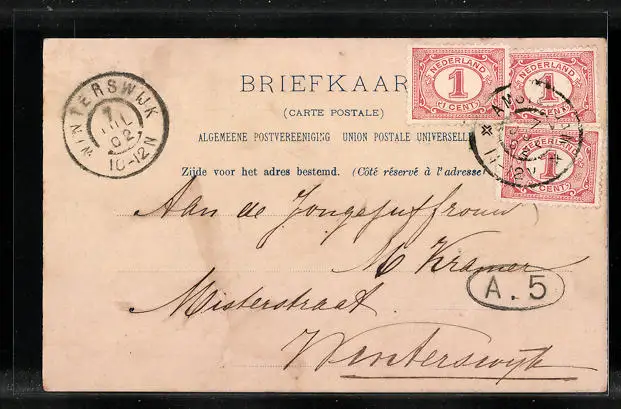 BRIEFKAAR
(CARTE POSTALE)
ALGEMEENE POSTVEREENIGING UNION POSTALE UNIVERSELLE
Zijde voor het adres bestemd. (Côté réservé à l'adresse
NEDERLAND
1
1 CENT
NEDERLAND
1
CENT
NEDERLAND
1
1 CENT
WINTERSWIJK
1 JUL 02
10-12 N
Aan de Jongejuffrouw
M Kramer
A. 5
Misterstraat
Winterswyk